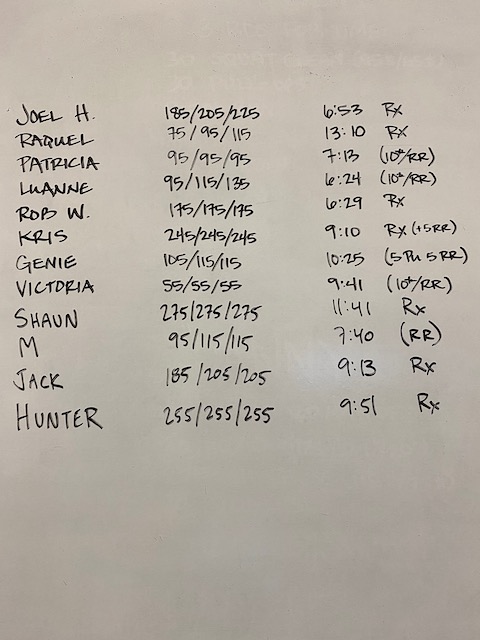 JOEL H. 185/205/225 6:53 Rx
RAQUEL 75/95/115 13:10 Rx
PATRICIA 95/95/95 7:13 (10#/RR)
LUANNE 95/115/135 6:24 (10#/RR)
ROB W. 175/175/175 6:29 Rx
KRIS 245/245/245 9:10 Rx (+5RR)
GENIE 105/115/115 10:25 (5 Pu 5 RR)
VICTORIA 55/55/55 9:41 (10#/RR)
SHAUN 275/275/275 11:41 Rx
M 95/115/115 7:40 (RR)
JACK 185/205/205 9:13 Rx
HUNTER 255/255/255 9:51 Rx